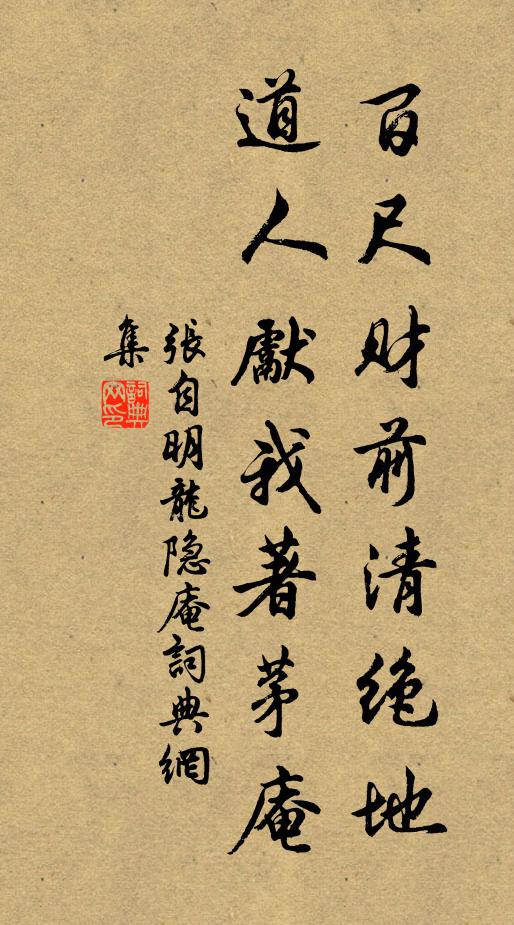 百尺财前清絶地
道人獻我著茅庵
張自明龍隐庵詞典網
集
詞典
网印